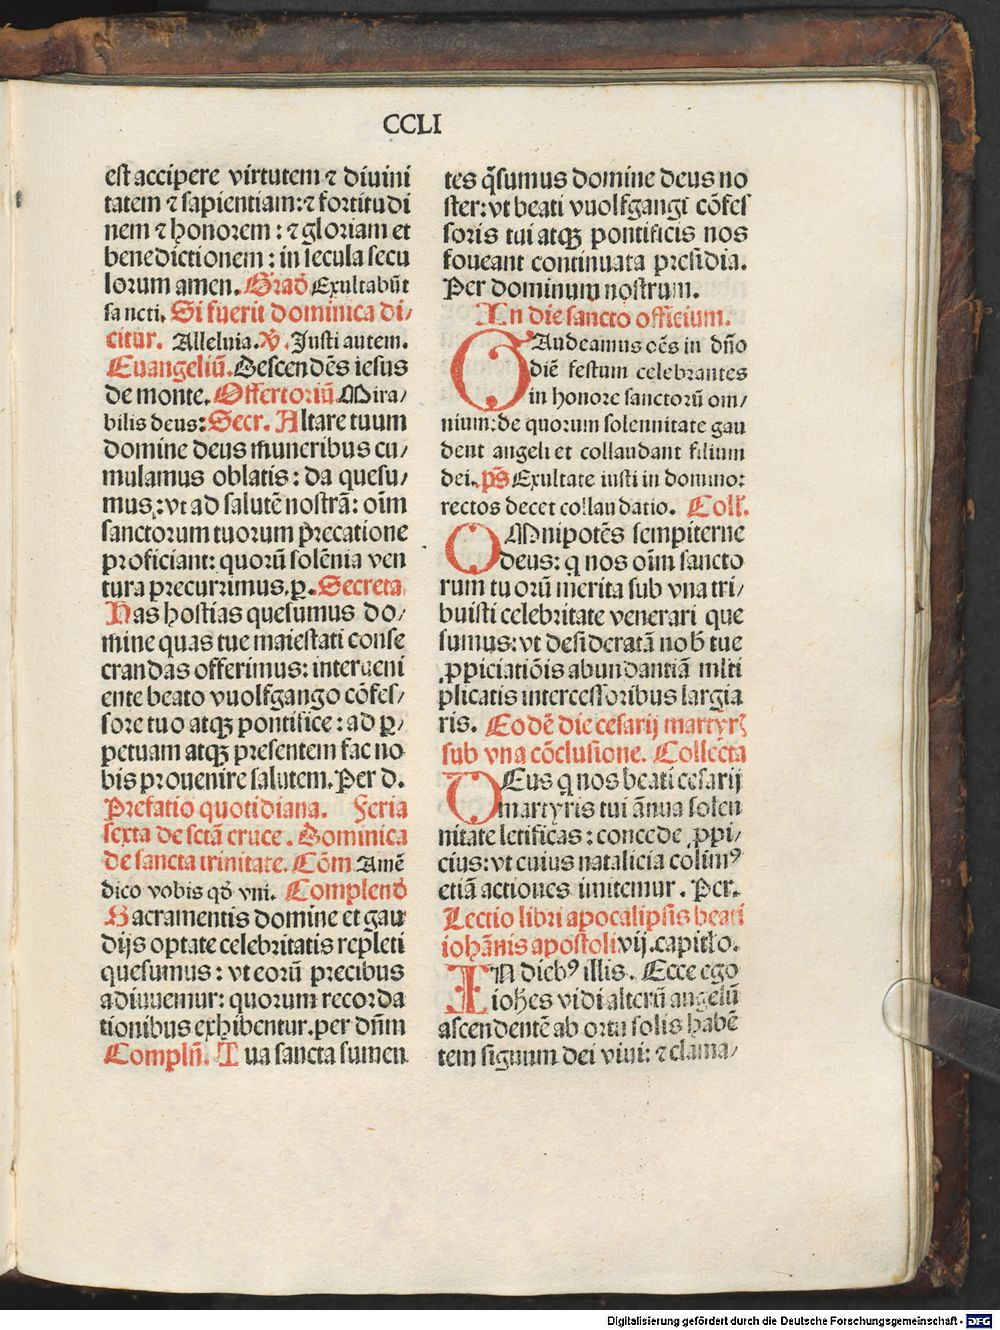 CCLI
est accipere virtutem ⁊ diuini
tatem ⁊ sapientiam:⁊ fortitudi
nem ⁊ honorem : ⁊ gloriam et
benedictionem : in secula secu
lorum amen. Grad̄ Exultabūt
sancti. Si fuerit dominica di/
citur. Alleluia. V̄. Justi autem.
Euangeliū. Descendēs iesus
de monte. Offertoriū. Mira/
bilis deus: Secr. Altare tuum
domine deus muneribus cu/
mulamus oblatis : da quesu/
mus: vt ad salutē nostrā: oīm
sanctorum tuorum p̄recatione
proficiant: quorū solēnia ven
tura precurrimus. ꝑ. Secreta
Has hostias quesumus do/
mine quas tue maiestati conse
crandas offerimus: interueni
ente beato vuolfgango cōfes/
sore tuo atqꝫ pontifice : ad ꝑ/
petuam atqꝫ presentem fac no
bis prouenire salutem. Per d.
Prefatio quotidiana. Feria
sexta de sctā cruce. Dominica
de sancta trinitate. Cōm Amē
dico vobis qđ vni. Complend̄
Sacramentis domine et gau
dijs optate celebritatis repleti
quesumus : vt eorū precibus
adiuuemur: quorum recorda
tionibus exhibentur. per dn̄m
Compln̄. Tua sancta sumen
tes q̄sumus domine deus no
ster: vt beati vuolfgangi cōfes
soris tui atqꝫ pontificis nos
foueant continuata presidia.
Per dominum nostrum.
In die sancto officium.
GAudeamus oēs in dn̄o
diē festum celebrantes
in honore sanctorū om/
nium: de quorum solennitate gau
dent angeli et collaudant filium
dei. pš Exultate iusti in domino:
rectos decet collaudatio. Coll.
OMnipotēs sempiterne
deus: q nos oīm sancto
rum tuorū merita sub vna tri/
buisti celebritate venerari que
sumus: vt desideratā nob̄ tue
ꝓpiciatiōis abundantiā mlti
plicatis intercessoribus largia
ris. Eodē die cesarij martyrꝫ
sub vna cōclusione. Collecta
DEus q nos beati cesarij
martyris tui ānua solen
nitate letificas : concede ꝓpi/
cius: vt cuius natalicia colimꝰ
etiā actiones imitemur . Per.
Lectio libri apocalipsis beati
iohānis apostoli vij. capitlo.
IN diebꝰ illis. Ecce ego
iohes vidi alterū angelū
ascendentē ab ortu solis habē
tem signum dei viui: ⁊ clama/
Digitalisierung gefördert durch die Deutsche Forschungsgemeinschaft - DFG